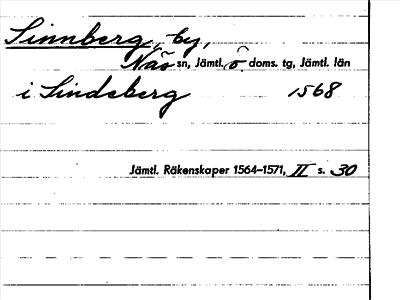 Sinnberg, by,
Näs sn, Jämtl. ö. doms. tg, Jämtl. län
i Sindeberg 1568
Jämtl. Räkenskaper 1564–1571, II s. 30